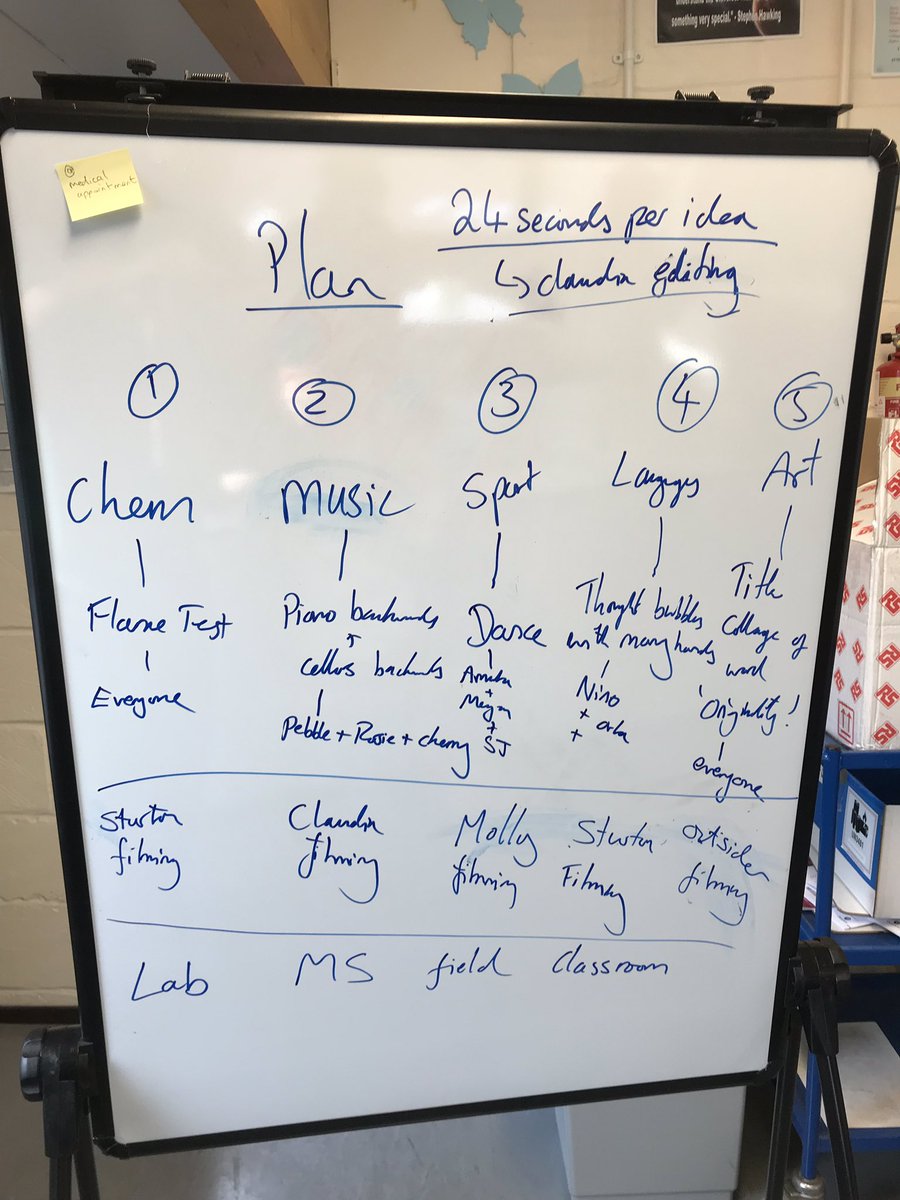 something very special." - Stephen Hawking
medical
appointment
Plan
24 seconds per idea
↳ claudia editing
① ② ③ ④ ⑤
Chem
Flame Test
Everyone
Sturton
filming
Lab
Music
Piano backwards
cellos backwards
Pebble + Rosie + cherry
Claudia
filming
MS
Sport
Dance
+
Megan
+
SJ
Molly
filming
field
Thought bubbles
with many hands
Nino
+
+
Sturton
Filming
Classroom
Art
Title
Collage of
word
'Originality!
everyone
outsider
filming
RS